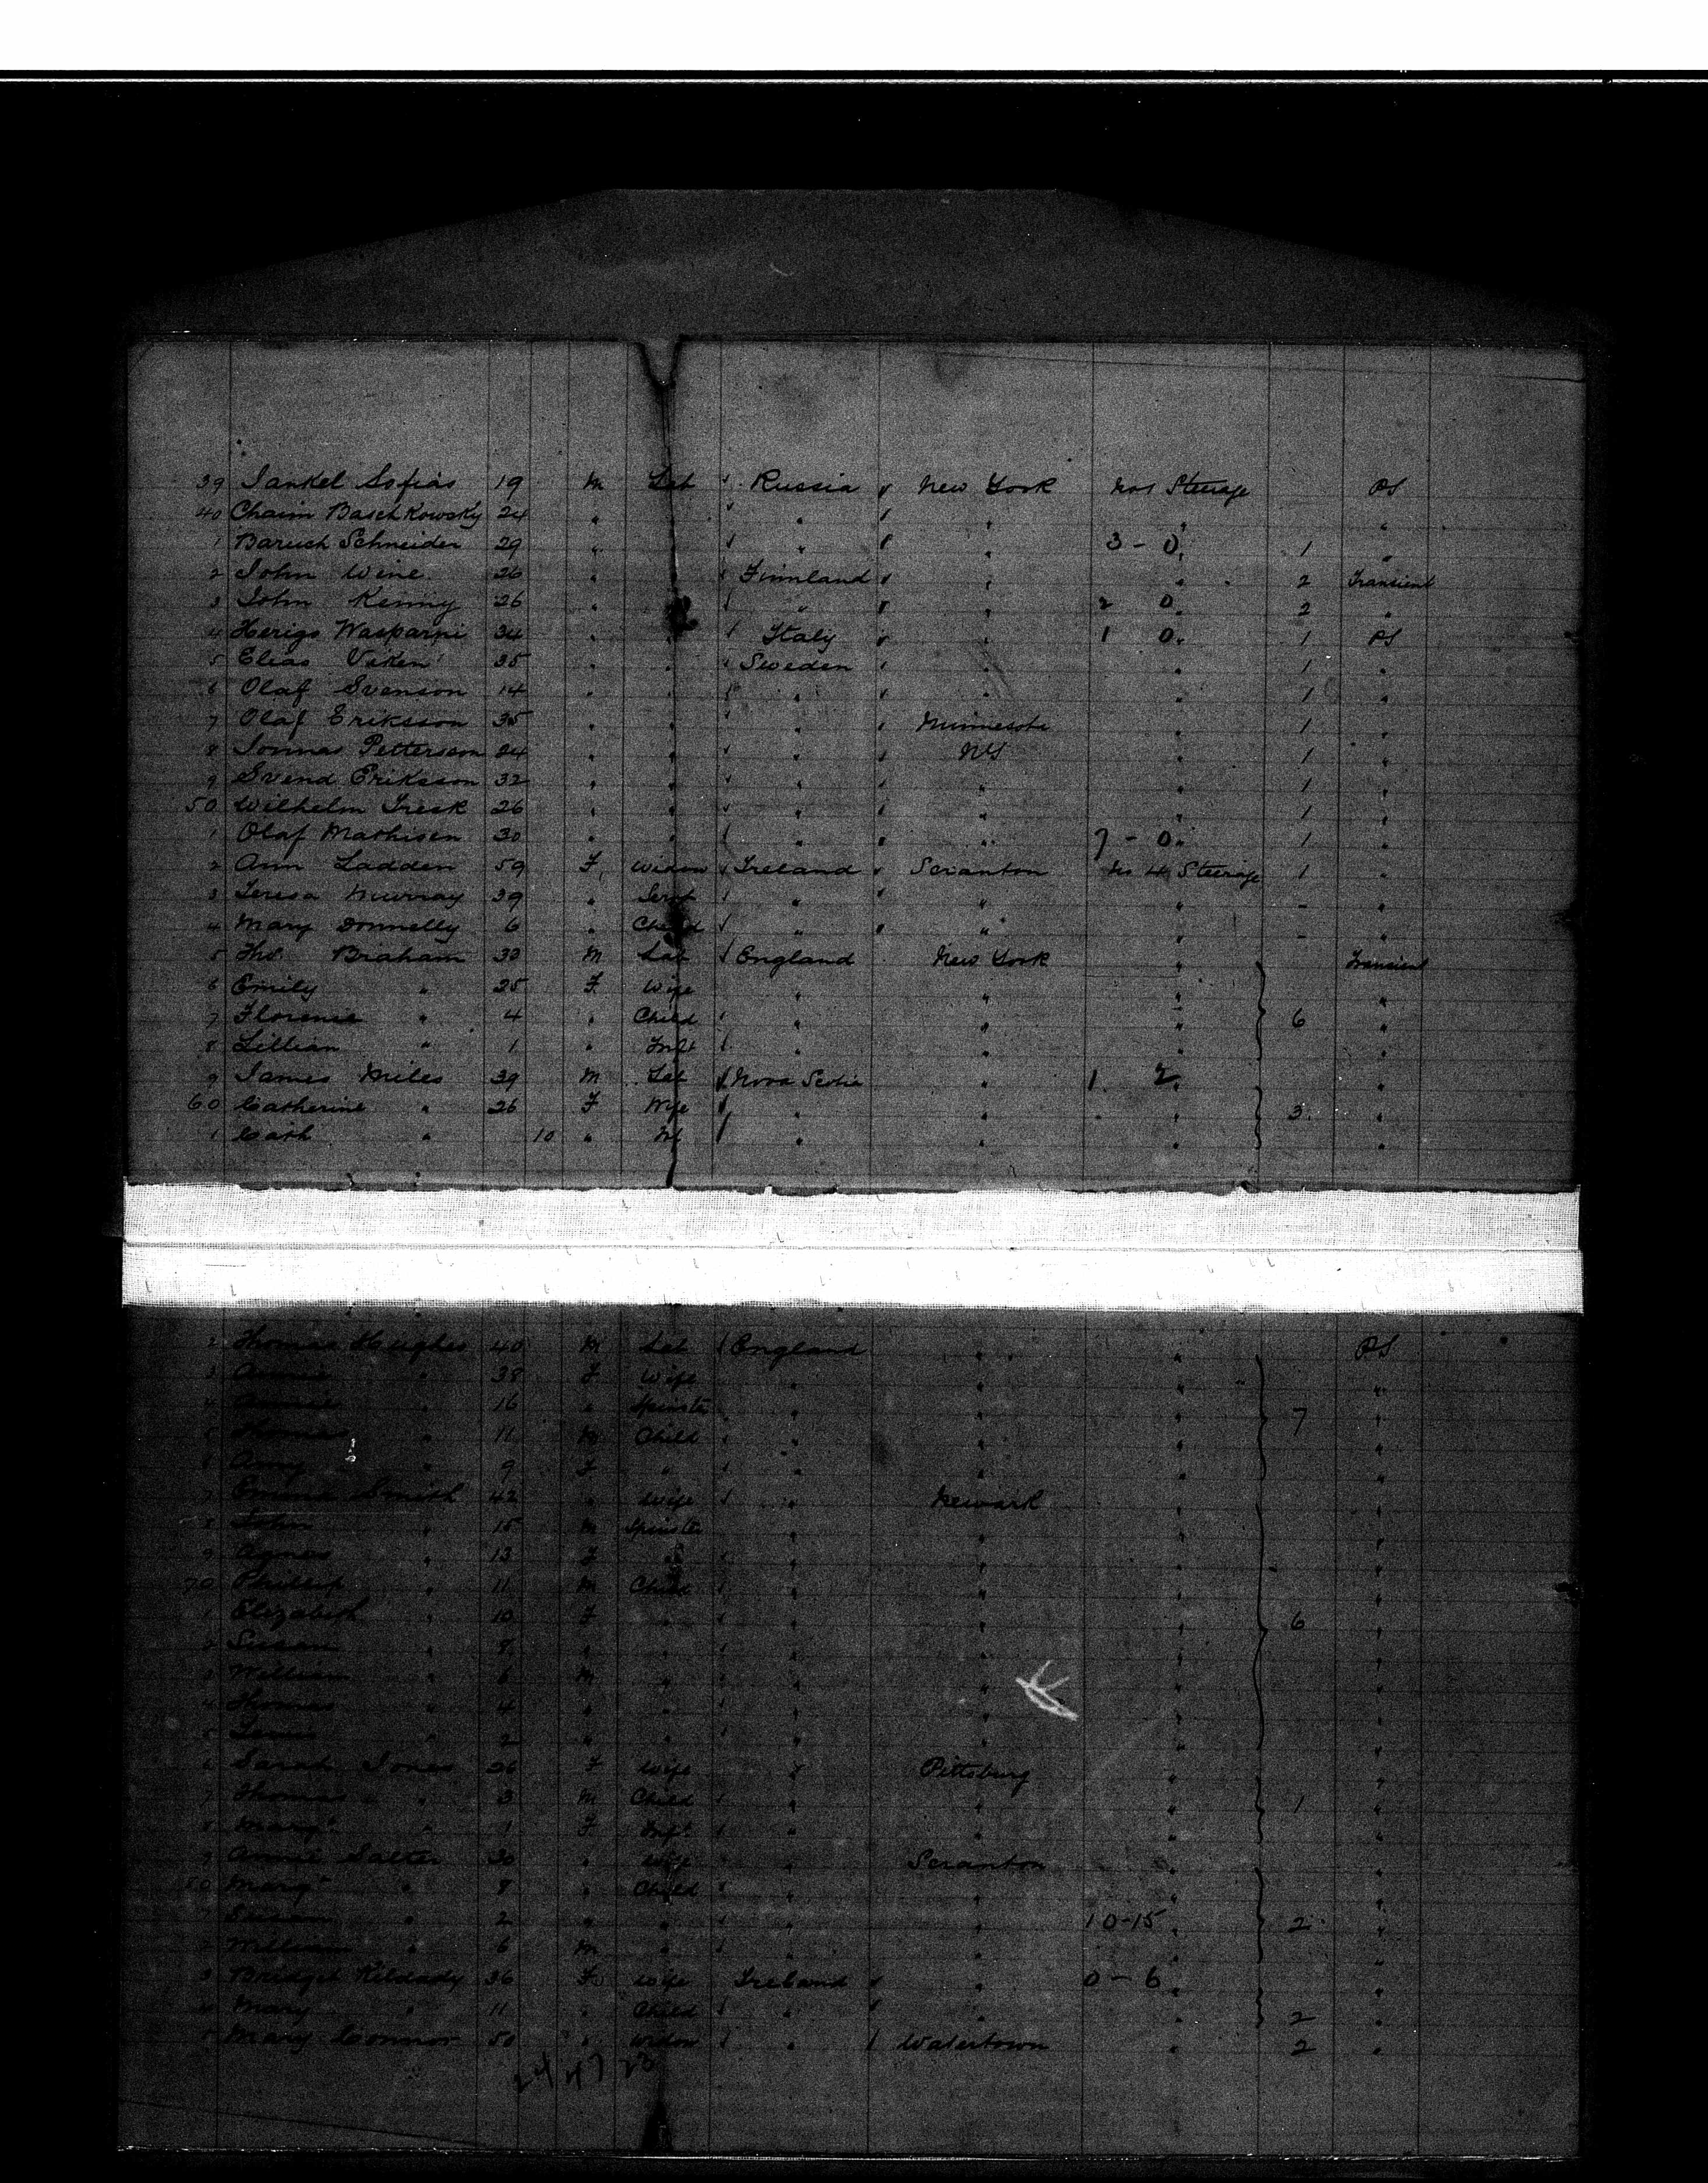 39 Jankel Sofias 19 M Lab Russia New York No 1 Steerage PS
40 Chaim Baschkowsky 24 " " " " "
1 Baruch Schneider 29 " " " 3 - 0 1 "
2 John Wine 26 " Finnland " " 2 Transient
3 John Kenny 26 " " " 2 0 2 "
4 Herigo Wasparpi 34 " " Italy " 1 0 1 PS
5 Elias Viken 35 " " Sweden " " 1 "
6 Olaf Svenson 14 " " " " " 1 "
7 Olaf Eriksson 35 " " " Minnesota " 1 "
8 Jonnas Petterson 24 " " " NY " 1 "
9 Svend Eriksson 32 " " " " " 1 "
50 Wilhelm Treek 26 " " " " " 1 "
1 Olaf Mathisen 30 " " " " 7 - 0 1 "
2 Ann Ladden 59 F Widow Ireland Scranton No 4 Steerage 1 "
3 Teresa Murray 39 " Servt " " " - "
4 Mary Donnelly 6 " Child " " " - "
5 Tho. Braham 33 M Lab England New York " Transient
6 Emily " 25 F Wife " " " "
7 Florence " 4 " Child " " " 6 "
8 Lillian " 1 " Inft " " " "
9 James Miles 39 M Lab Nova Scotia " 1 2 "
60 Catherine " 26 F Wife " " " 3 "
1 Cath " 10 " Inf " " " "
2 Thomas Hughes 40 M Lab England " " PS
3 Annie " 38 F Wife " " " "
4 Annie " 16 " Spinster " " " 7 "
5 Thomas " 11 M Child " " " "
6 Amy " 9 F " " " " "
7 Emma Smith 42 " Wife " Newark " "
8 John " 15 M Spinster " " " "
9 Agnes " 13 F " " " " "
70 Phillip " 11 M Child " " " "
1 Elizabeth " 10 F " " " " 6 "
2 Susan " 8 " " " " " "
3 William " 6 M " " " " "
4 Thomas " 4 " " " " " "
5 " 2 " " " " " "
6 Sarah Jones 26 F Wife " Pittsburg " "
7 Thomas " 3 M Child " " " 1 "
8 Margt " 1 F Inft " " " "
9 Annie Salter 30 " Wife " Scranton " "
80 Margt " 8 " Child " " " "
1 Susan " 2 " " " " 10-15 2 "
2 William " 6 M " " " " "
3 Bridget Kildady 36 F Wife Ireland " 0 - 6 "
4 Mary " 11 " Child " " " 2 "
5 Mary Connor 50 " Widow " Watertown " 2 "